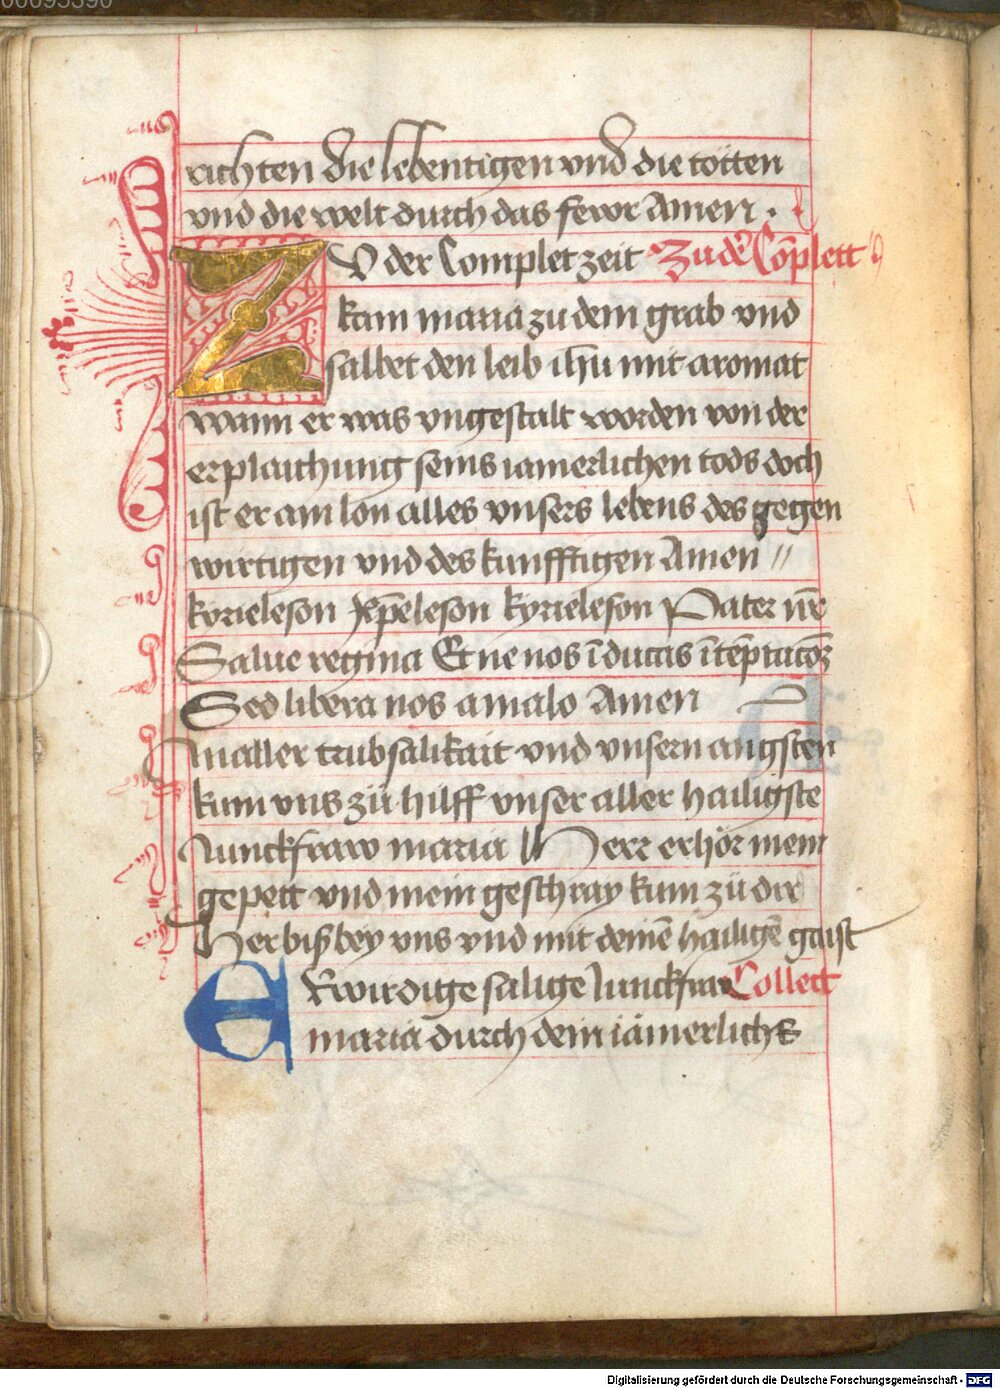 00095390
richten die lebentigen vnd die totten
vnd die welt durch das fewr Amen .
ZV der Complet zeit Zu der Co̅plett
kam maria zu dem grab vnd
salbet den leib ihu mit aromat
wann er was vngestalt worden von der
erplaichung seins iamerlichen tods doch
ist er am lon alles vnsers lebens des gegen
wirtigen vnd des kunfftigen Amen //
kyrieleson xp̅eleson kyrieleson Pater nr̅e
Salue regina Et ne nos i̅ducas i̅te̅ptacoꝫ
Sed libera nos a malo Amen
In aller trubsalikait vnd vnsern angsten
kum vns zů hilff vnser aller hailigste
Junckfraw maria // Herr erhör mein
gepett vnd mein geschray kum zů dir
Her biß bey vns vnd mit deine̅ hailige̅ gaist
ERwirdige salige Junckfraw Collect
maria durch dein iämerliche
Digitalisierung gefördert durch die Deutsche Forschungsgemeinschaft - DFG